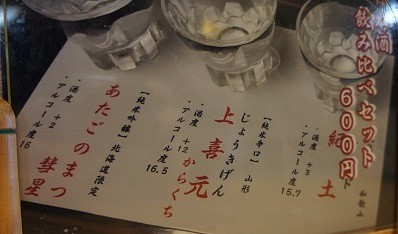 飲み比べセット
６００円
和歌山
土
・酒度 +3
・アルコール度 15.7
【純米辛口】 山形
じょうきげん
上喜元
からくち
・酒度 +12
・アルコール度 16.5
【純米吟醸】 北海道限定
あたごのまつ
彗星
・酒度 +2
・アルコール度 16